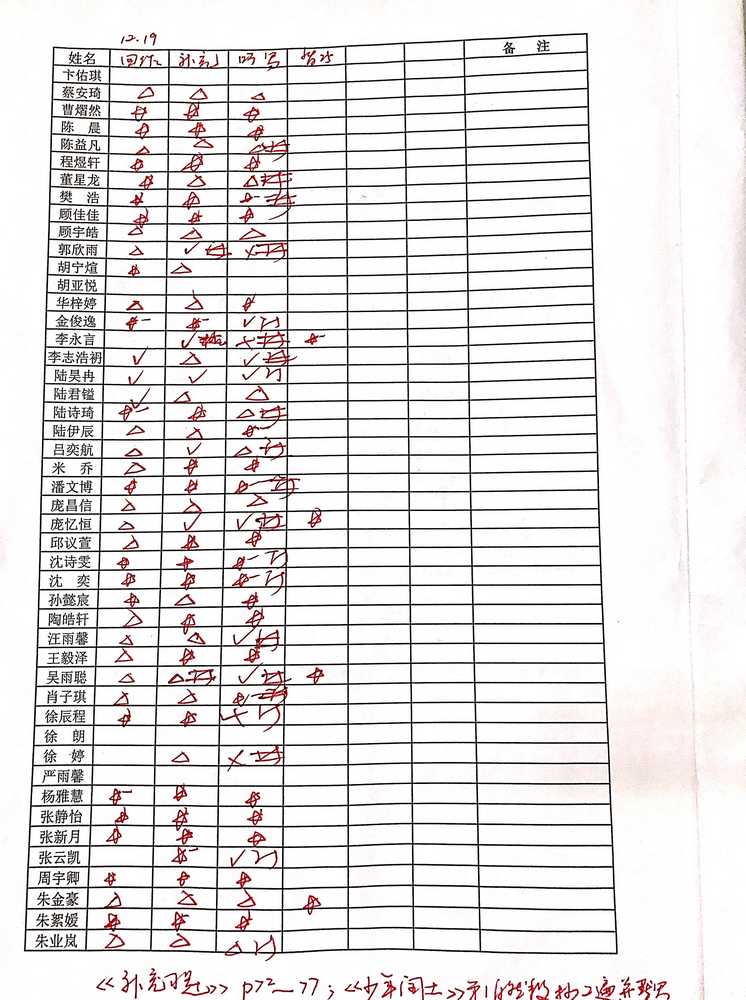 12.19
姓名 回作 补充 听写 备 注
卞佑琪
蔡安琦 △ △ △
曹熠然 ☆ ☆ ☆
陈 晨 ☆ ☆ ☆
陈益凡 △ △ △订
程煜轩 ☆ ☆ ☆
董星龙 ☆ △ △订
樊 浩 ☆ ☆ ☆-订
顾佳佳 ☆ ☆ ☆
顾宇皓 △ △ △
郭欣雨 △ ✓订 ×订
胡宁煊 ☆ △
胡亚悦
华梓婷 △ △ ☆
金俊逸 ☆- ☆- ✓订
李永言 ✓ ×订 ☆-
李志浩礽 ✓ △ ✓订
陆昊冉 ✓ ✓ ✓订
陆君镒 ✓ △ △
陆诗琦 ☆- ☆ △订
陆伊辰 △ △ ☆-
吕奕航 △ ✓ △订
米 乔 △ ☆ ☆
潘文博 ☆ ☆ ☆-订
庞昌信 △ △ △
庞忆恒 △ ✓ ✓订 ☆
邱议萱 △ ☆ ☆
沈诗雯 ☆ ☆ ☆-订
沈 奕 ☆ ☆ ☆-订
孙懿宸 ☆ △ ☆
陶皓轩 △ ☆ ☆
汪雨馨 △ △ ✓订
王毅泽 △ ☆ ☆
吴雨聪 △ △订 ✓订 ☆
肖子琪 △ △ ☆-订
徐辰程 ☆ ☆ ×订
徐 朗
徐 婷 △ ×订
严雨馨
杨雅慧 ☆- ☆ ☆
张静怡 ☆ ☆ ☆
张新月 ☆ ☆ ☆
张云凯 ☆- ✓订
周宇卿 ☆ ☆ ☆
朱金豪 △ △ △ ☆
朱絮媛 ☆ ☆ ☆
朱业岚 △ △ △订
《补充习题》p72—77；《少年闰土》第1自然段抄2遍并默写